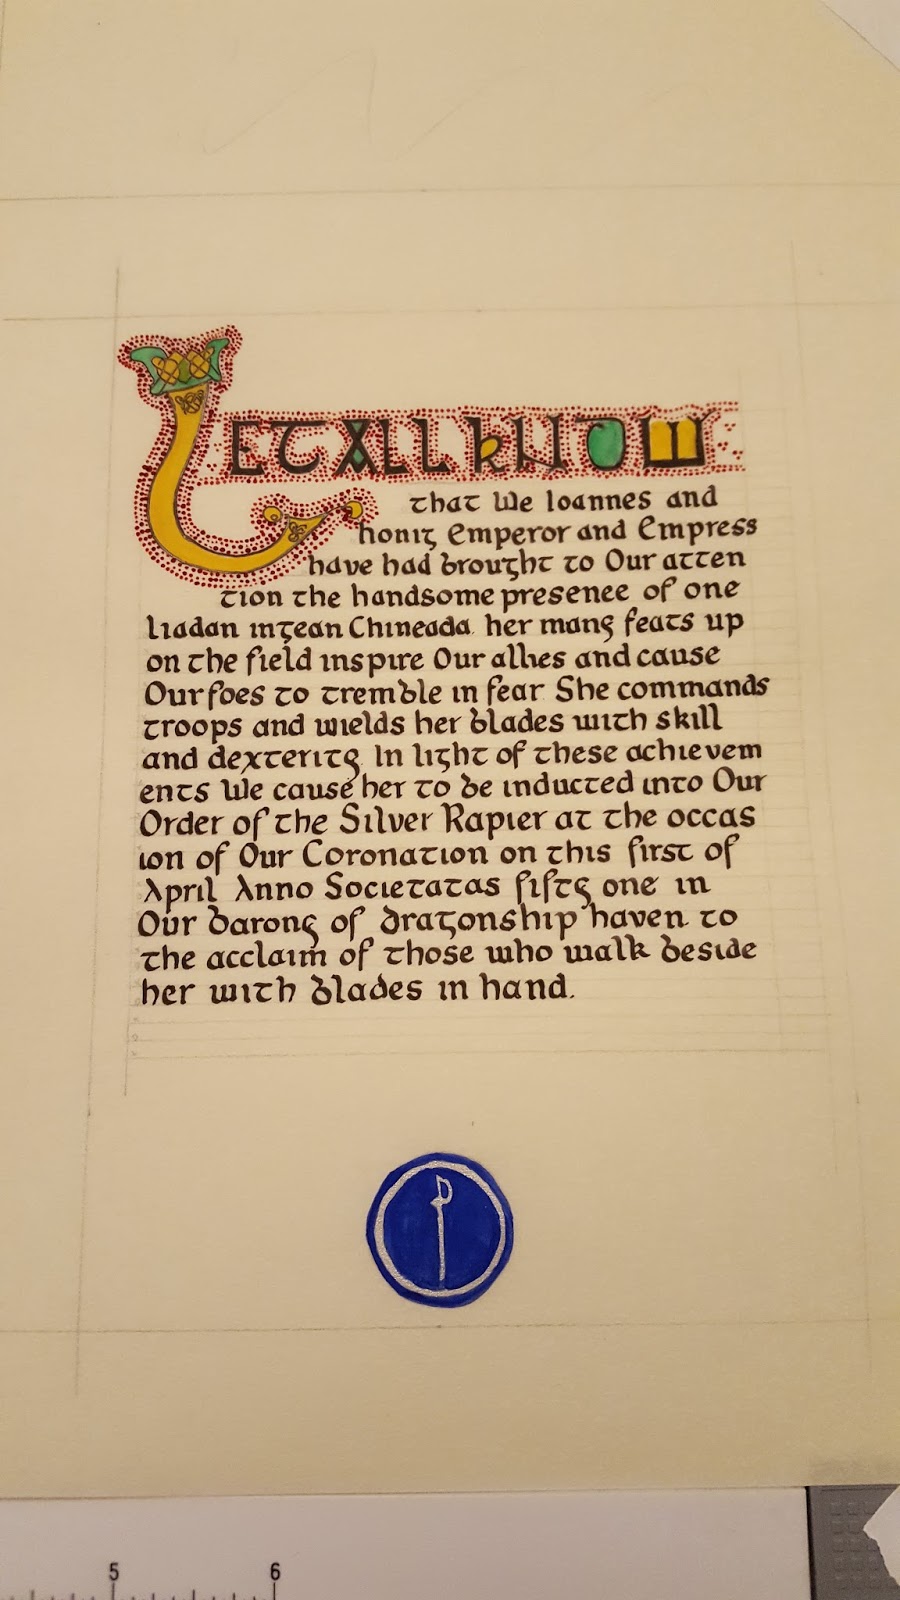 LET ALL KNOW
that We Ioannes and
honig Emperor and Empress
have had brought to Our atten
tion the handsome presence of one
liadan ingean Chineada. her many feats up
on the field inspire Our allies and cause
Our foes to tremble in fear She commands
troops and wields her blades with skill
and dexterity. In light of these achievem
ents We cause her to be inducted into Our
Order of the Silver Rapier at the occas
ion of Our Coronation on this first of
April Anno Societatas fifty one in
Our barony of dragonship haven to
the acclaim of those who walk beside
her with blades in hand.
5 6